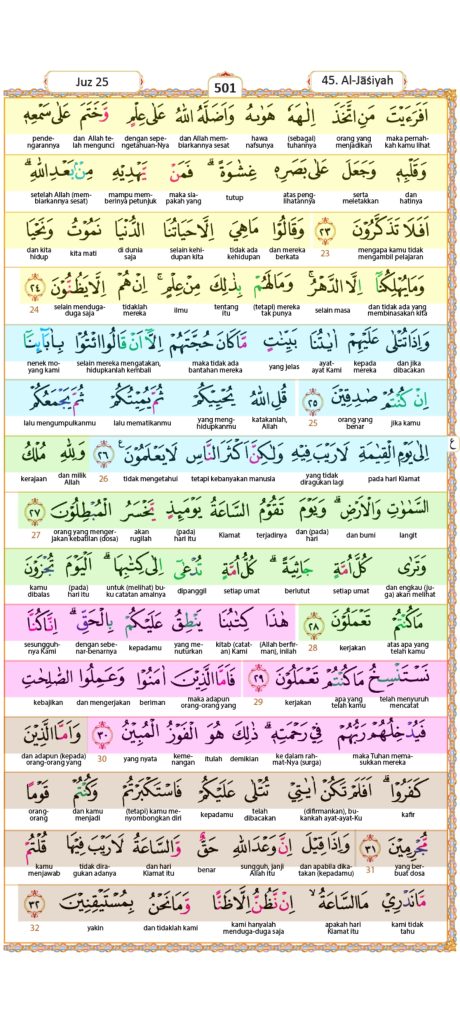 Juz 25
501
45. Al-Jāṡiyah
اَفَرَءَيْتَ مَنِ اتَّخَذَ اِلٰهَهٗ هَوٰىهُ وَاَضَلَّهُ اللّٰهُ عَلٰى عِلْمٍ وَّخَتَمَ عَلٰى سَمْعِهٖ
maka pernah-kah kamu lihat orang yang menjadikan (sebagai) tuhannya hawa nafsunya dan Allah mem-biarkannya sesat dengan sepe-ngetahuan-Nya dan Allah te-lah mengunci pende-ngarannya
وَقَلْبِهٖ وَجَعَلَ عَلٰى بَصَرِهٖ غِشٰوَةًۗ فَمَنْ يَّهْدِيْهِ مِنْۢ بَعْدِ اللّٰهِۗ
dan hatinya serta meletakkan atas peng-lihatannya tutup maka sia-pakah yang mampu mem-berinya petunjuk setelah Allah (mem-biarkannya sesat)
اَفَلَا تَذَكَّرُوْنَ ٢٣ وَقَالُوْا مَا هِيَ اِلَّا حَيَاتُنَا الدُّنْيَا نَمُوْتُ وَنَحْيَا
mengapa kamu tidak mengambil pelajaran 23 dan mereka berkata tidak ada kehidupan selain kehi-dupan kita di dunia saja kita mati dan kita hidup
وَمَا يُهْلِكُنَآ اِلَّا الدَّهْرُۚ وَمَا لَهُمْ بِذٰلِكَ مِنْ عِلْمٍۚ اِنْ هُمْ اِلَّا يَظُنُّوْنَ ٢٤
dan tidak ada yang membinasakan kita selain masa (tetapi) mereka tak punya tentang itu ilmu tidaklah mereka selain menduga-duga saja 24
وَاِذَا تُتْلٰى عَلَيْهِمْ اٰيٰتُنَا بَيِّنٰتٍ مَّا كَانَ حُجَّتَهُمْ اِلَّآ اَنْ قَالُوا ائْتُوْا بِاٰبَآىِٕنَآ
dan jika dibacakan kepada mereka ayat-ayat Kami yang jelas maka tidak ada bantahan mereka selain mereka mengatakan, hidupkanlah kembali nenek mo-yang kami
اِنْ كُنْتُمْ صٰدِقِيْنَ ٢٥ قُلِ اللّٰهُ يُحْيِيْكُمْ ثُمَّ يُمِيْتُكُمْ ثُمَّ يَجْمَعُكُمْ
jika kamu orang yang benar 25 katakanlah, Allah yang meng-hidupkanmu lalu mematikanmu lalu mengumpulkanmu
اِلٰى يَوْمِ الْقِيٰمَةِ لَا رَيْبَ فِيْهِ وَلٰكِنَّ اَكْثَرَ النَّاسِ لَا يَعْلَمُوْنَ ࣖ ٢٦ وَلِلّٰهِ مُلْكُ
ع
pada hari Kiamat yang tidak diragukan lagi tetapi kebanyakan manusia tidak mengetahui 26 dan milik Allah kerajaan
السَّمٰوٰتِ وَالْاَرْضِۗ وَيَوْمَ تَقُوْمُ السَّاعَةُ يَوْمَىِٕذٍ يَّخْسَرُ الْمُبْطِلُوْنَ ٢٧
langit dan bumi dan (pada) hari terjadinya Kiamat (pada) hari itu akan rugilah orang yang menger-jakan kebatilan (dosa) 27
وَتَرٰى كُلَّ اُمَّةٍ جَاثِيَةًۗ كُلُّ اُمَّةٍ تُدْعٰٓى اِلٰى كِتٰبِهَاۗ اَلْيَوْمَ تُجْزَوْنَ
dan engkau (ju-ga) akan melihat setiap umat berlutut setiap umat dipanggil untuk (melihat) bu-ku catatan amalnya (pada) hari itu kamu dibalas
مَا كُنْتُمْ تَعْمَلُوْنَ ٢٨ هٰذَا كِتٰبُنَا يَنْطِقُ عَلَيْكُمْ بِالْحَقِّۗ اِنَّا كُنَّا
atas apa yang telah kamu kerjakan 28 (Allah berfir-man), inilah kitab (catat-an) Kami yang me-nuturkan kepadamu dengan sebe-nar-benarnya sesungguh-nya Kami
نَسْتَنْسِخُ مَا كُنْتُمْ تَعْمَلُوْنَ ٢٩ فَاَمَّا الَّذِيْنَ اٰمَنُوْا وَعَمِلُوا الصّٰلِحٰتِ
telah menyuruh mencatat apa yang telah kamu kerjakan 29 maka adapun orang-orang yang beriman dan mengerjakan kebajikan
فَيُدْخِلُهُمْ رَبُّهُمْ فِيْ رَحْمَتِهٖۗ ذٰلِكَ هُوَ الْفَوْزُ الْمُبِيْنُ ٣٠ وَاَمَّا الَّذِيْنَ
maka Tuhan mema-sukkan mereka ke dalam rah-mat-Nya (surga) demikian itulah keme-nangan yang nyata 30 dan adapun (kepada) orang-orang yang
كَفَرُوْاۗ اَفَلَمْ تَكُنْ اٰيٰتِيْ تُتْلٰى عَلَيْكُمْ فَاسْتَكْبَرْتُمْ وَكُنْتُمْ قَوْمًا
kafir (difirmankan), bu-kankah ayat-ayat-Ku telah dibacakan kepadamu (tetapi) kamu me-nyombongkan diri dan kamu menjadi orang-orang
مُّجْرِمِيْنَ ٣١ وَاِذَا قِيْلَ اِنَّ وَعْدَ اللّٰهِ حَقٌّ وَّالسَّاعَةُ لَا رَيْبَ فِيْهَا قُلْتُمْ
yang ber-buat dosa 31 dan apabila dika-takan (kepadamu) sungguh, janji Allah itu benar dan hari Kiamat itu tidak dira-gukan adanya kamu menjawab
مَّا نَدْرِيْ مَا السَّاعَةُۙ اِنْ نَّظُنُّ اِلَّا ظَنًّا وَّمَا نَحْنُ بِمُسْتَيْقِنِيْنَ ٣٢
kami tidak tahu apakah hari Kiamat itu kami hanyalah menduga-duga saja dan tidaklah kami yakin 32